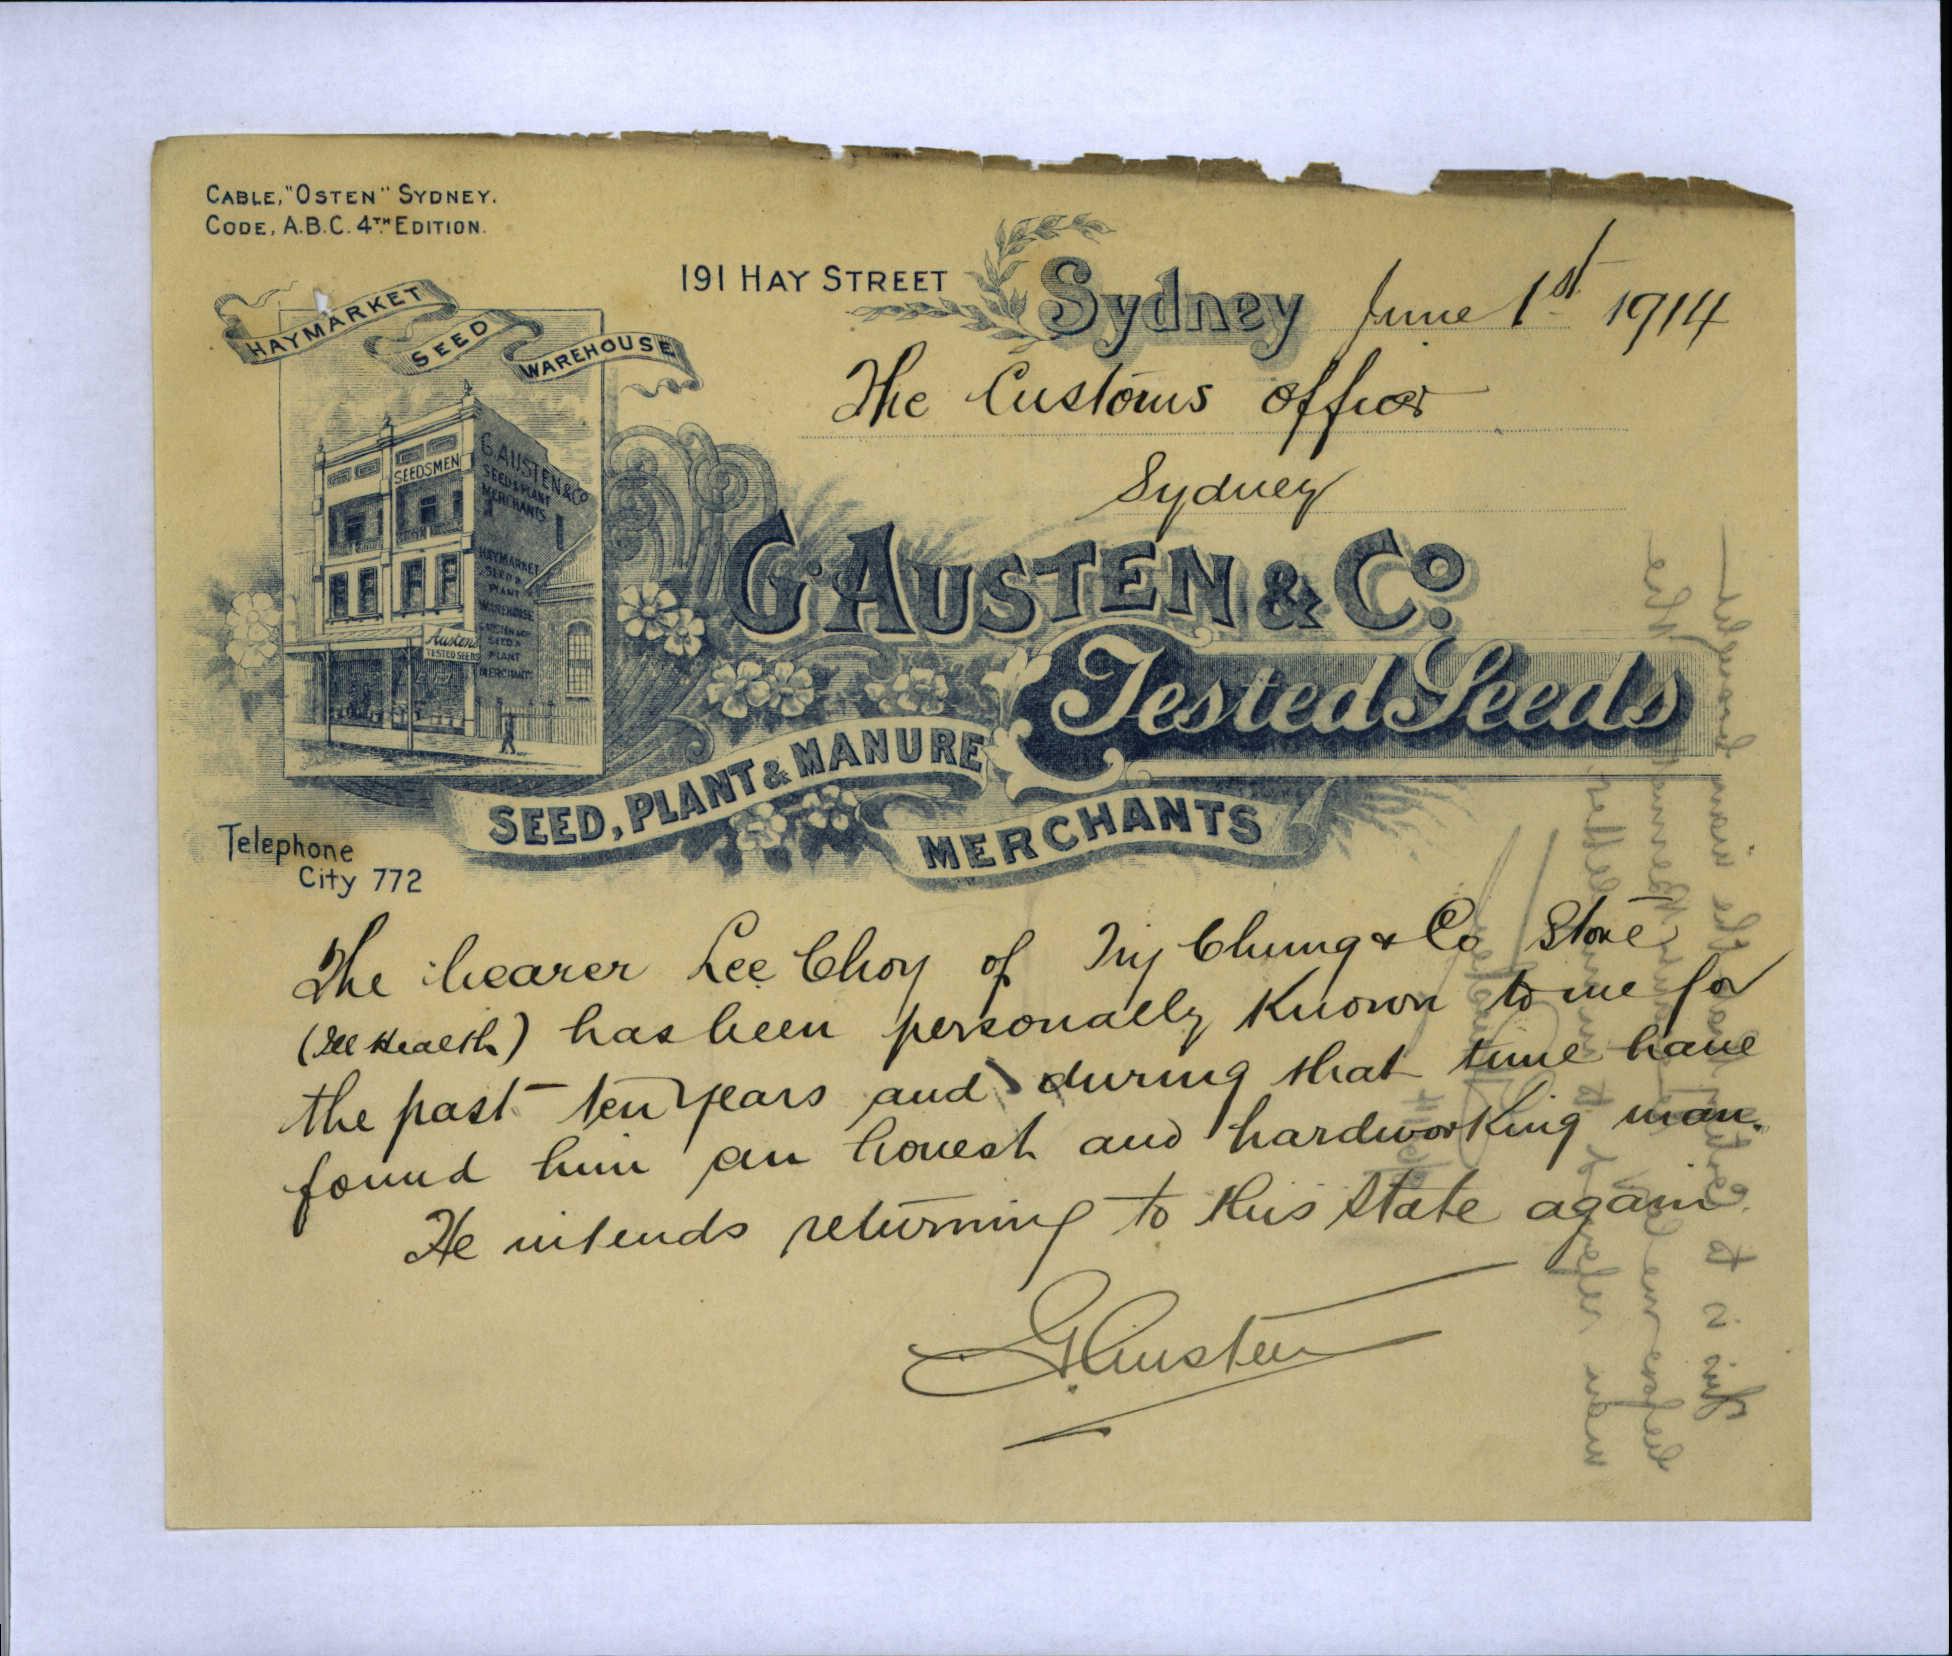 CABLE, "OSTEN" SYDNEY.
CODE, A.B.C. 4TH EDITION.
191 HAY STREET Sydney June 1st 1914
The Customs Officer
Sydney
HAYMARKET SEED WAREHOUSE
SEEDSMEN
G. AUSTEN & CO
SEED & PLANT
MERCHANTS
HAYMARKET
SEED &
PLANT
WAREHOUSE
SEED &
PLANT
MERCHANTS
Austens
TESTED SEEDS
G. AUSTEN & CO.
Tested Seeds
SEED, PLANT & MANURE
MERCHANTS
Telephone
City 772
The bearer Lee Choy of Chung & Co Store
(Ill Health) has been personally known to me for
the past ten years and during that time have
found him an honest and hardworking man.
He intends returning to this State again
G. Austen